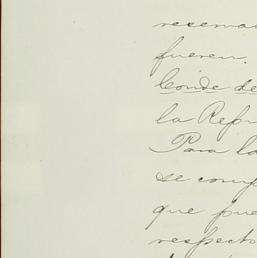 fueren.
Conde de
la Repu
Para la
se comp
que pue
respecto